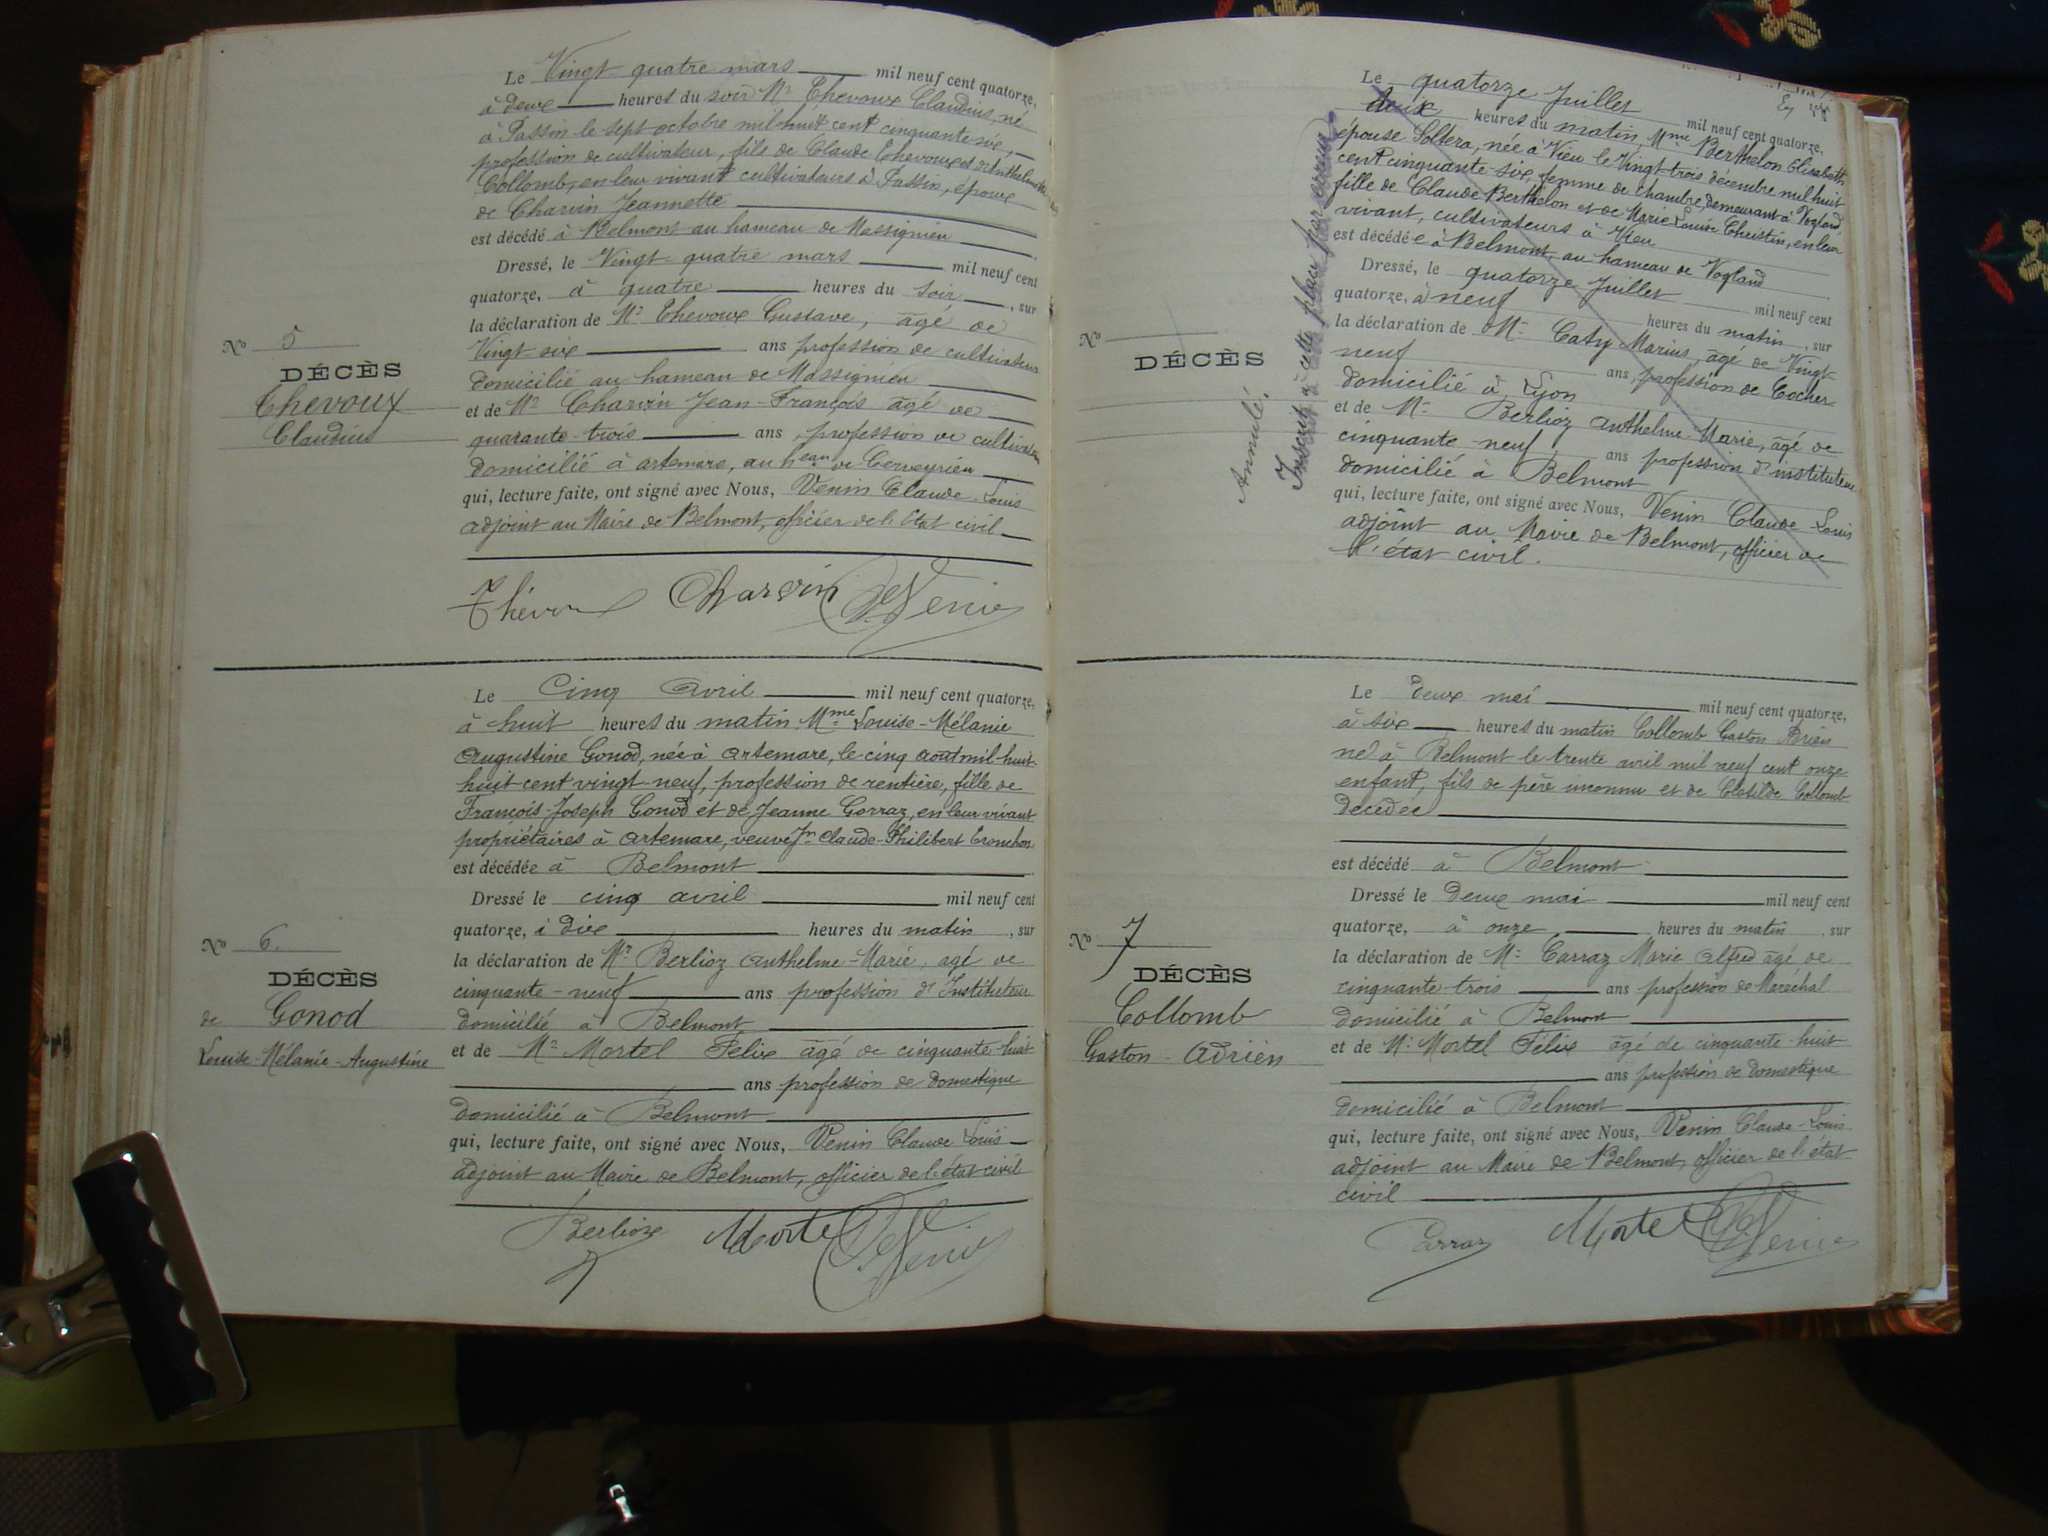 Le Vingt quatre mars mil neuf cent quatorze,
à deux heures du soir Mr Thevoux Claudius, né
à Passin le sept octobre mil huit cent cinquante six,
profession de cultivateur, fils de Claude Thevoux et d'Anthelmette
Collomb, en leur vivant cultivateurs à Passin, époux
de Charvin Jeannette
est décédé à Belmont au hameau de Massignieu
Dressé, le Vingt quatre mars mil neuf cent
quatorze, à quatre heures du soir, sur
la déclaration de Mr Thevoux Gustave, âgé de
Vingt six ans profession de cultivateur
domicilié au hameau de Massignieu
et de Mr Charvin Jean-François âgé de
quarante-trois ans, profession de cultivateur
domicilié à artemare, au heau de Cerveyrieu
qui, lecture faite, ont signé avec Nous, Venin Claude-Louis
adjoint au Maire de Belmont, officier de l'état civil
No 5
DÉCÈS
Thevoux
Claudius
Charvin Venin
Le Cinq Avril mil neuf cent quatorze,
à huit heures du matin Mme Louise-Mélanie
Augustine Gonod, née à Artemare, le cinq août mil huit
huit cent vingt neuf, profession de rentière, fille de
François-Joseph Gonod et de Jeanne Gorraz, en leur vivant
propriétaires à Artemare, veuve Claude-Philibert Tronchon
est décédée à Belmont
Dressé le cinq avril mil neuf cent
quatorze, à dix heures du matin, sur
la déclaration de Mr Berlioz Anthelme-Marie, agé de
cinquante-neuf ans profession d'Instituteur
domicilié à Belmont
et de Mr Mortel Félix âgé de cinquante-huit
ans profession de domestique
domicilié à Belmont
qui, lecture faite, ont signé avec Nous, Venin Claude Louis
adjoint au Maire de Belmont, officier de l'état civil
No 6.
DÉCÈS
de Gonod
Louise-Mélanie-Augustine
Berlioz Mortel Venin
Le quatorze Juillet mil neuf cent quatorze,
deux heures du matin, Mme Berthelon Elisabeth
épouse Soltera, née à Vieu le Vingt-trois décembre mil huit
cent cinquante-six, femme de chambre, demeurant à Vogland,
fille de Claude Berthelon et de Marie Louise Christin, en leur
vivant, cultivateurs à Vieu
est décédée à Belmont, au hameau de Vogland
Dressé, le quatorze Juillet mil neuf cent
quatorze, à neuf heures du matin, sur
la déclaration de Mr Caty Marius, âgé de Vingt
neuf ans, profession de Cocher
domicilié à Lyon
et de Mr Berlioz Anthelme-Marie, âgé de
cinquante-neuf ans profession d'instituteur
domicilié à Belmont
qui, lecture faite, ont signé avec Nous, Venin Claude-Louis
adjoint au Maire de Belmont, officier de
l'état civil.
No
DÉCÈS
Annulé.
Inscrit à cette place par erreur
Le deux mai mil neuf cent quatorze,
à six heures du matin Collomb Gaston Adrien
né à Belmont le trente avril mil neuf cent onze
enfant, fils de père inconnu et de Clotilde Collomb
décédée
est décédé à Belmont
Dressé le deux mai mil neuf cent
quatorze, à onze heures du matin, sur
la déclaration de Mr Carraz Marie Alfred âgé de
cinquante-trois ans profession de Maréchal
domicilié à Belmont
et de Mr Mortel Félix âgé de cinquante-huit
ans profession de domestique
domicilié à Belmont
qui, lecture faite, ont signé avec Nous, Venin Claude-Louis
adjoint au Maire de Belmont, officier de l'état
civil
No 7
DÉCÈS
Collomb
Gaston-Adrien
Carraz Mortel Venin